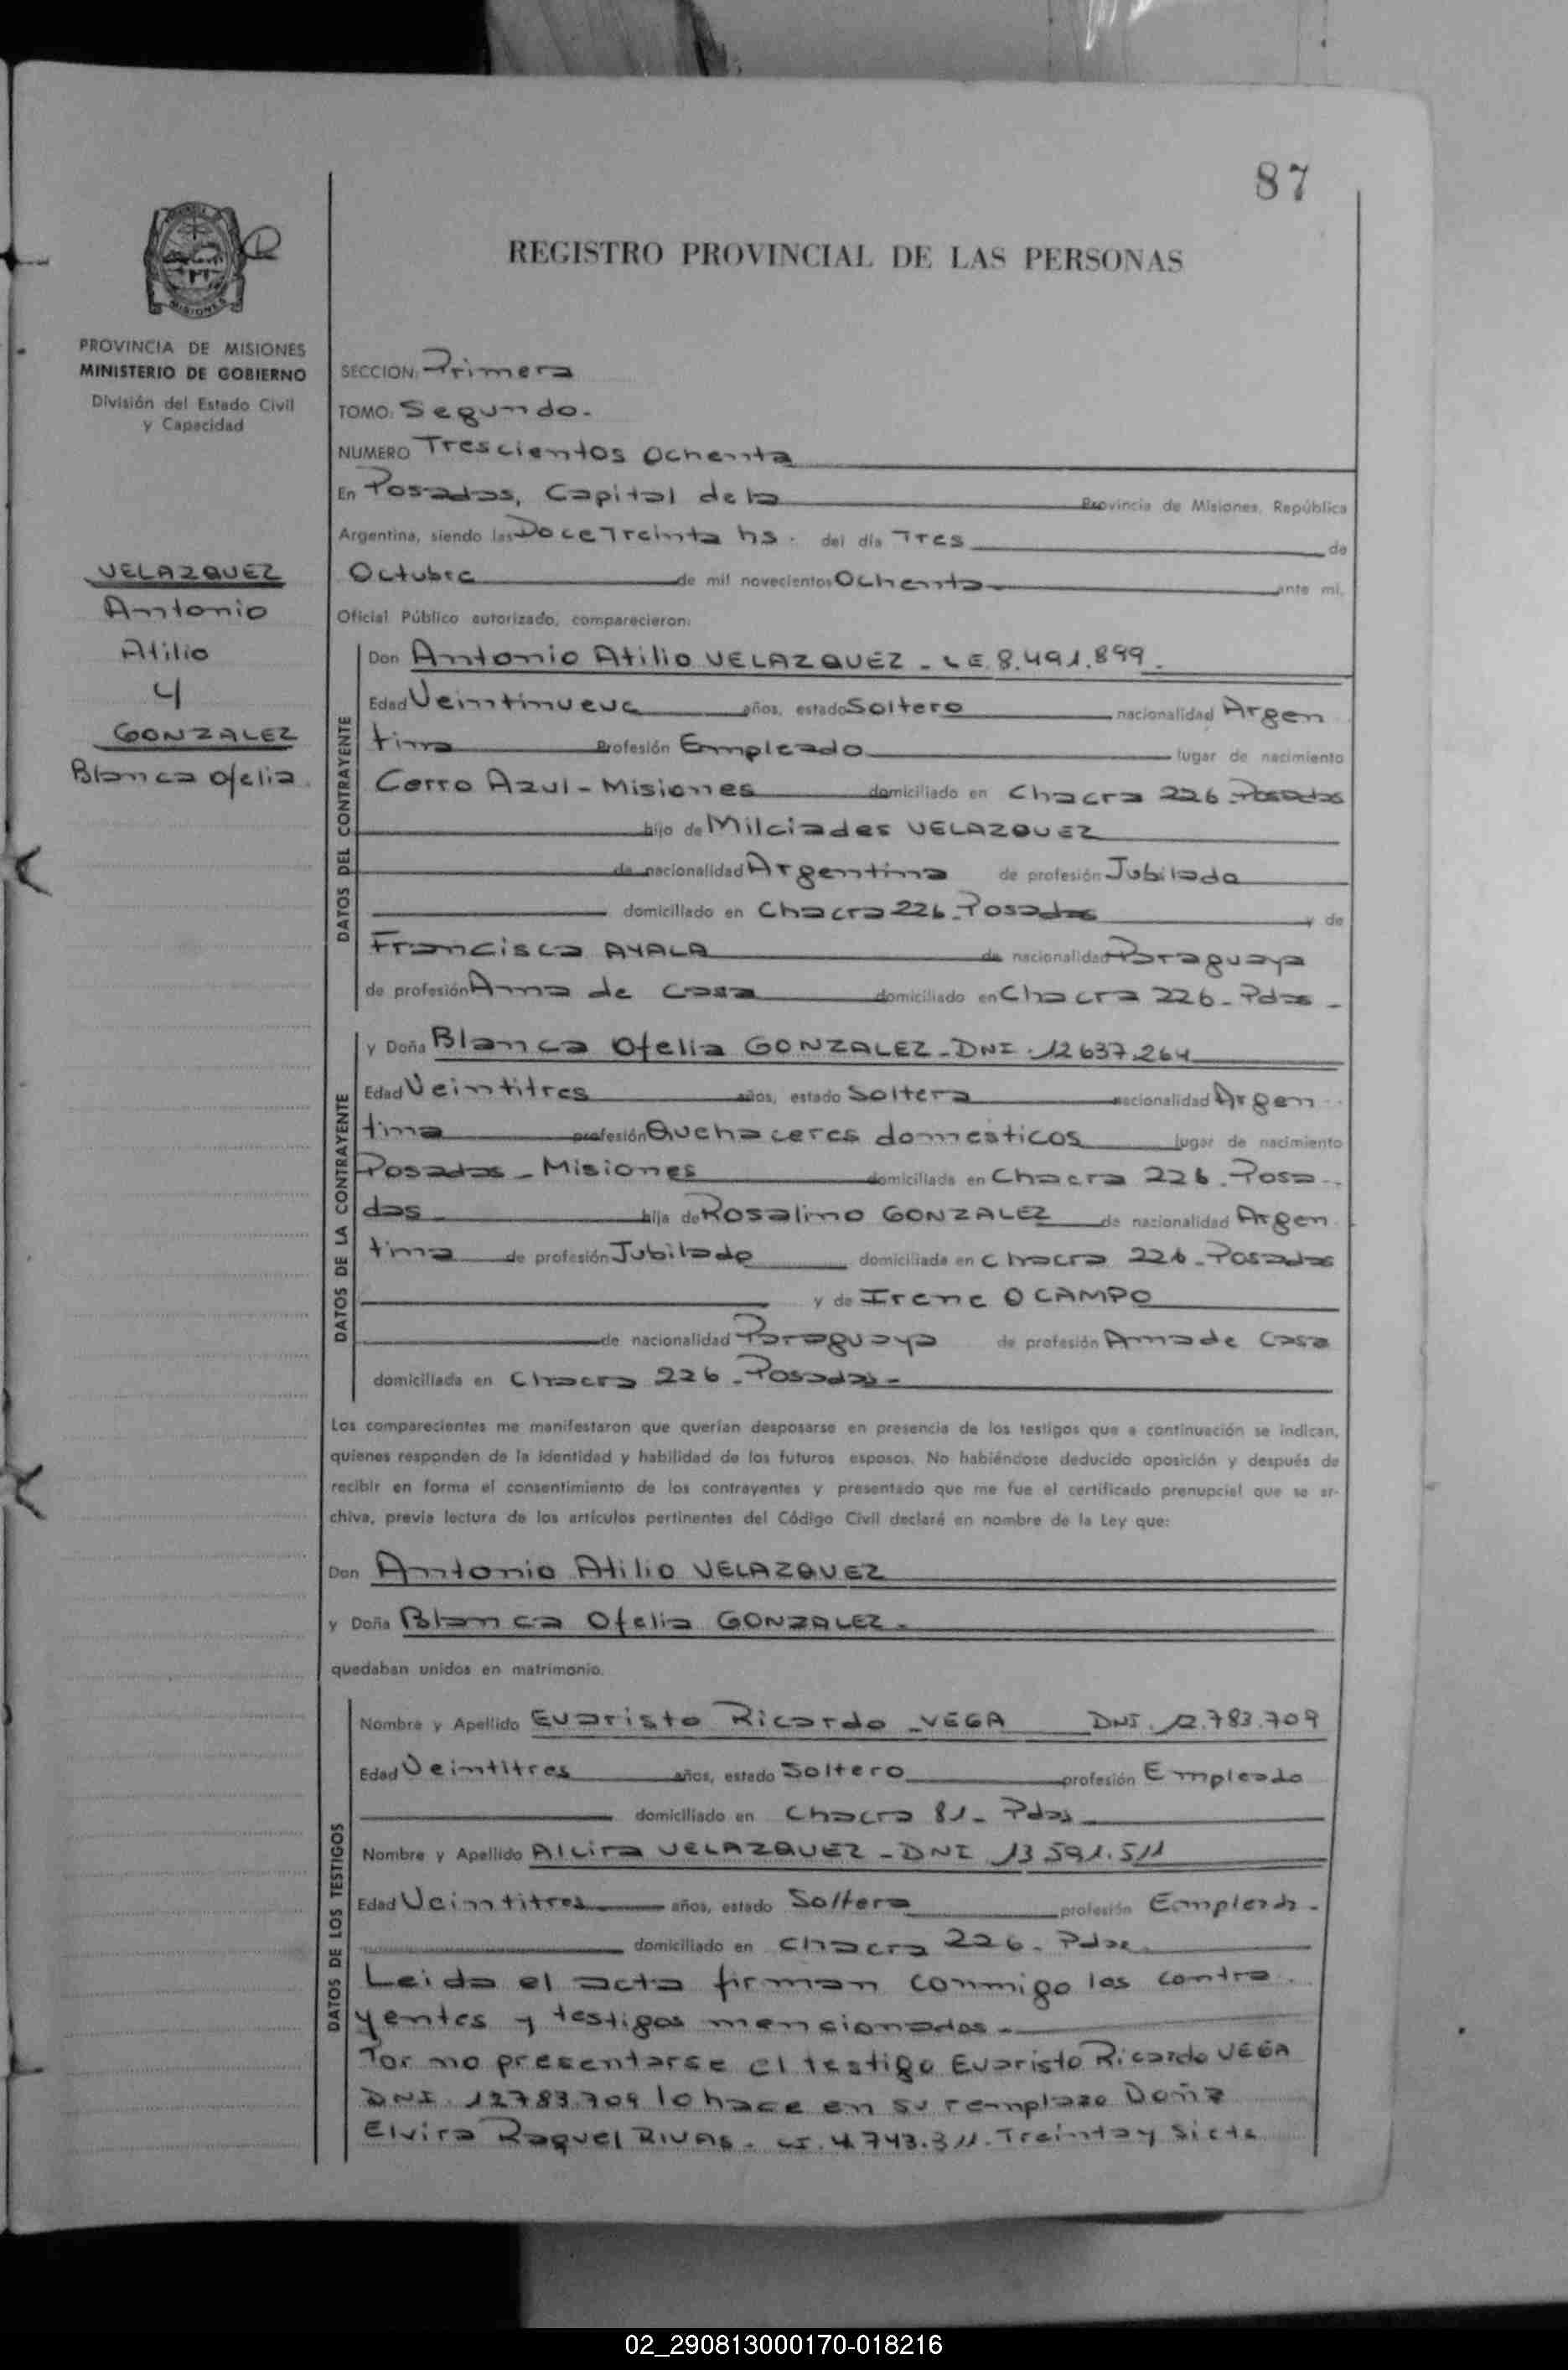 87
REGISTRO PROVINCIAL DE LAS PERSONAS
MISIONES
PROVINCIA DE MISIONES
MINISTERIO DE GOBIERNO
División del Estado Civil
y Capacidad
VELAZQUEZ
Antonio
Atilio
y
GONZALEZ
Blanca Ofelia.
SECCION: Primera
TOMO: Segundo.
NUMERO Trescientos Ochenta
En Posadas, Capital de la Provincia de Misiones, República
Argentina, siendo las Doce Treinta hs. del día Tres de
Octubre de mil novecientos Ochenta ante mí,
Oficial Público autorizado, comparecieron:
DATOS DEL CONTRAYENTE
Don Antonio Atilio VELAZQUEZ - LE. 8.491.899.
Edad Veintinueve años, estado Soltero nacionalidad Argen
tina Profesión Empleado lugar de nacimiento
Cerro Azul - Misiones domiciliado en Chacra 226. Posadas
hijo de Milciades VELAZQUEZ
de nacionalidad Argentina de profesión Jubilado
domiciliado en Chacra 226. Posadas y de
Francisca AYALA de nacionalidad Paraguaya
de profesión Ama de casa domiciliado en Chacra 226 - Pdas -
DATOS DE LA CONTRAYENTE
y Doña Blanca Ofelia GONZALEZ - DNI. 12637.264
Edad Veintitres años, estado Soltera nacionalidad Argen
tina profesión Quehaceres domesticos lugar de nacimiento
Posadas - Misiones domiciliada en Chacra 226. Posa
das hija de Rosalino GONZALEZ de nacionalidad Argen
tina de profesión Jubilado domiciliada en Chacra 226 - Posadas
y de Irene OCAMPO
de nacionalidad Paraguaya de profesión Ama de casa
domiciliada en Chacra 226 - Posadas -
Los comparecientes me manifestaron que querían desposarse en presencia de los testigos que a continuación se indican,
quienes responden de la identidad y habilidad de los futuros esposos. No habiéndose deducido oposición y después de
recibir en forma el consentimiento de los contrayentes y presentado que me fue el certificado prenupcial que se ar-
chiva, previa lectura de los artículos pertinentes del Código Civil declaré en nombre de la Ley que:
Don Antonio Atilio VELAZQUEZ
y Doña Blanca Ofelia GONZALEZ -
quedaban unidos en matrimonio.
DATOS DE LOS TESTIGOS
Nombre y Apellido Evaristo Ricardo - VEGA DNI. 12.783.709
Edad Veintitres años, estado Soltero profesión Empleado
domiciliado en Chacra 81 - Pdas
Nombre y Apellido Alcira VELAZQUEZ - DNI 13 591.511
Edad Veintitres años, estado Soltera profesión Empleada -
domiciliado en Chacra 226 - Pdas.
Leida el acta firman conmigo los contra
yentes y testigos mencionados -
Por no presentarse el testigo Evaristo Ricardo VEGA
DNI. 12783.709 lo hace en su remplazo Doña
Elvira Raquel RIVAS - CI. 4.743.311. Treinta y siete
02_290813000170-018216